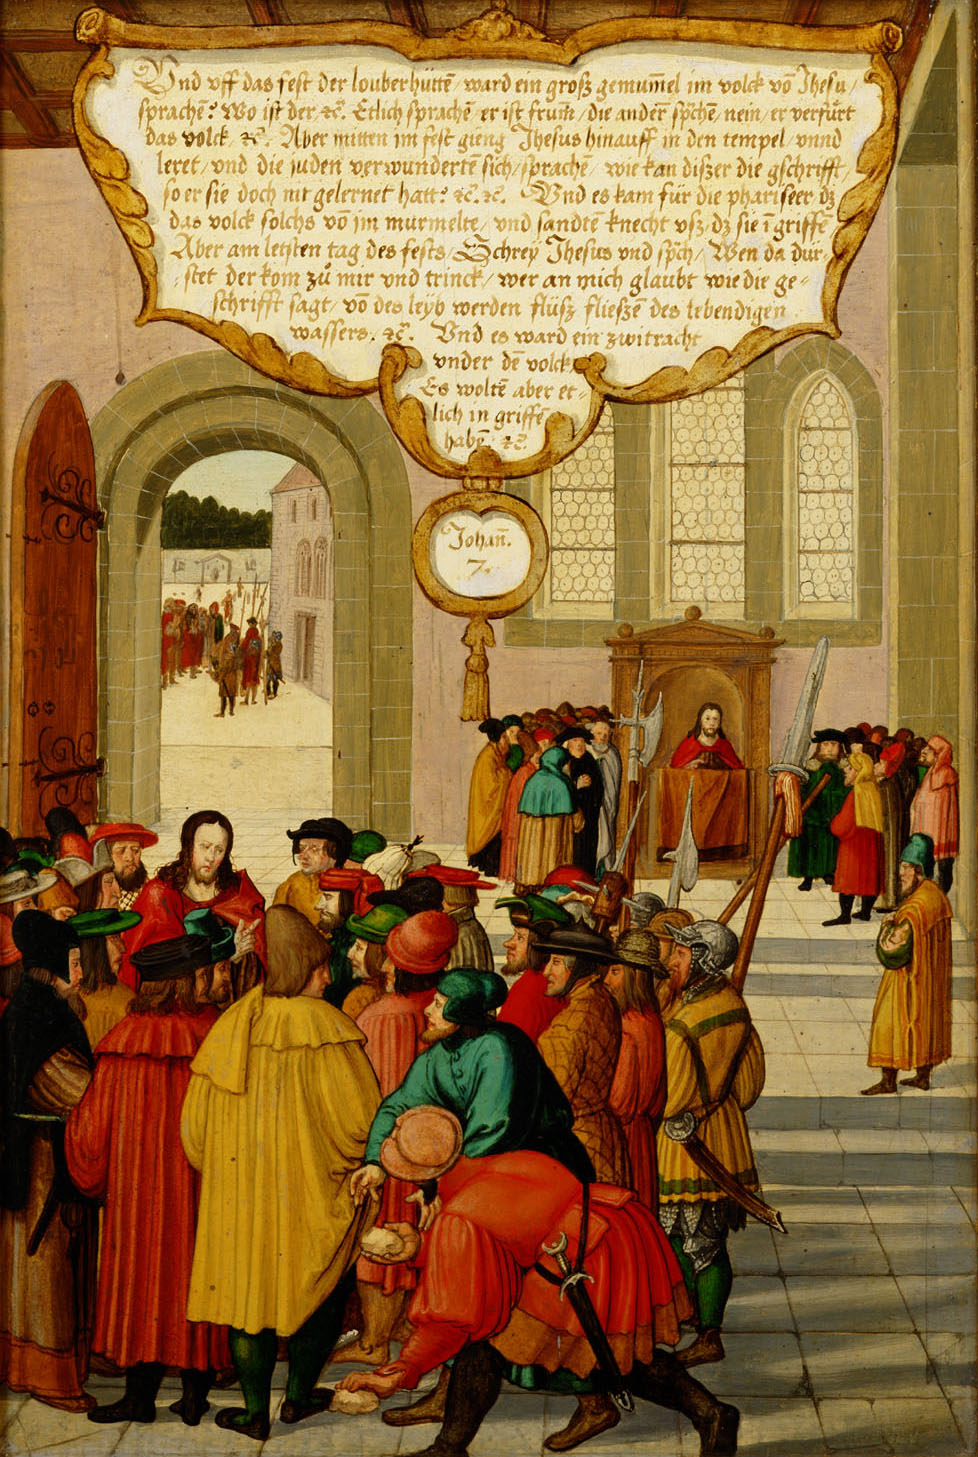 Vnd vff das fest der louberhüttē ward ein groſz gemum̄el im volck võ Jhesu/
sprachē: Wo ist der, ⁊c̄. Etlich sprachē er ist frum̄/ die anderē spchē, nein/ er verfürt
das volck, ⁊c̄. Aber mitten im fest gieng Jhesus hinauff in den tempel/ vnnd
leret/ vnd die juden verwundertē sich/ sprachē/ wie kan diſzer die gschrifft/
so er sie doch nit gelernet hatt: ⁊c̄. ⁊c̄. Vnd es kam für die phariseer dz
das volck solchs võ jm murmelte/ vnd sandtē knecht vſz/ dz sie ī griffē
Aber am letsten tag des fests/ Schrey Jhesus vnd spch/ Wen da dür-
stet der kom zů mir vnd trinck/ wer an mich glaubt wie die ge-
schrifft sagt/ võ des leyb werden flüſz flieſzē des lebendigen
wassers. ⁊c̄. Vnd es ward ein zwitracht
vnder dē volck
Es woltē aber et-
lich in griffē
habē ⁊c̄.
Johan̄.
7.